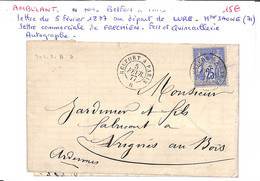 AMBULANT. Belfort à Paris 15€
lettre du 5 février 1877 au départ de LURE. Hte SAONE (71)
lettre commerciale de FRECHIEN. Fer et Quincaillerie
Autographe.
BELFORT À PARIS
5
FEVR.
77
25
Monsieur
Jardinier et fils
fabricant à
Vrignes au Bois
Ardennes